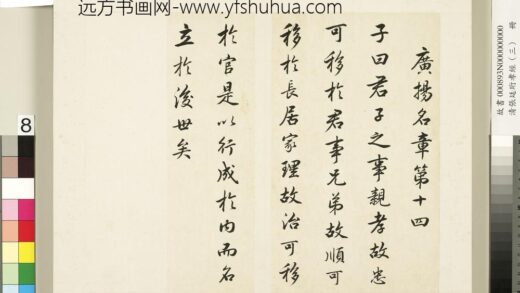 远方书画网-www.yfshuhua.com
廣揚名章第十四
子曰君子之事親孝故忠
可移於君事兄弟故順可
移於長居家理故治可移
於官是以行成於内而名
立於後世矣
8
故書000893N000000000
清張廷珩孝經（三） 冊